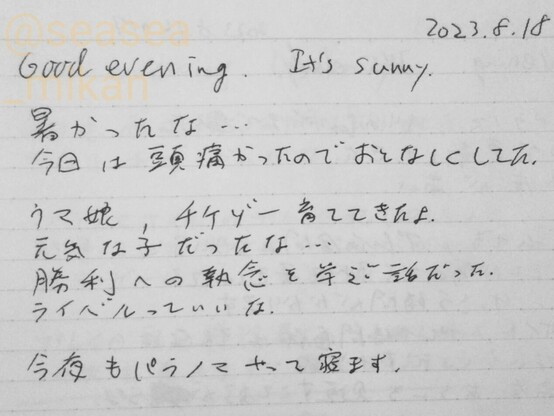 @seasea
_mikan
2023.8.18
Good evening. It's sunny.
暑かったな…
今日は頭痛かったのでおとなしくしてた。
ウマ娘，チケゾー育ててきたよ。
元気な子だったな…
勝利への執念を学ぶ話だった。
ライバルっていいな。
今夜もパラノマやって寝ます。